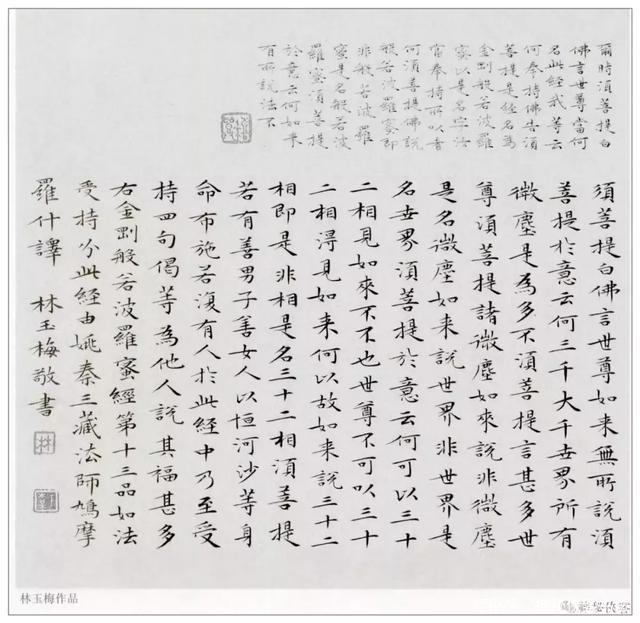 爾時須菩提白
佛言世尊當何
名此經我等云
何奉持佛告須
菩提是經名為
金剛般若波羅
蜜以是名字汝
當奉持所以者
何須菩提佛說
般若波羅蜜即
非般若波羅
蜜是名般若波
羅蜜須菩提
於意云何如来
有所說法不
須菩提白佛言世尊如来無所說須
菩提於意云何三千大千世界所有
微塵是為多不須菩提言甚多世
尊須菩提諸微塵如來說非微塵
是名微塵如来說世界非世界是
名世界須菩提於意云何可以三十
二相見如來不不也世尊不可以三十
二相得見如来何以故如来說三十二
相即是非相是名三十二相須菩提
若有善男子善女人以恒河沙等身
命布施若復有人於此經中乃至受
持四句偈等為他人說其福甚多
右金剛般若波羅蜜經第十三品如法
受持分此経由姚秦三藏法師鳩摩
羅什譯 林玉梅敬書
林
林玉梅作品